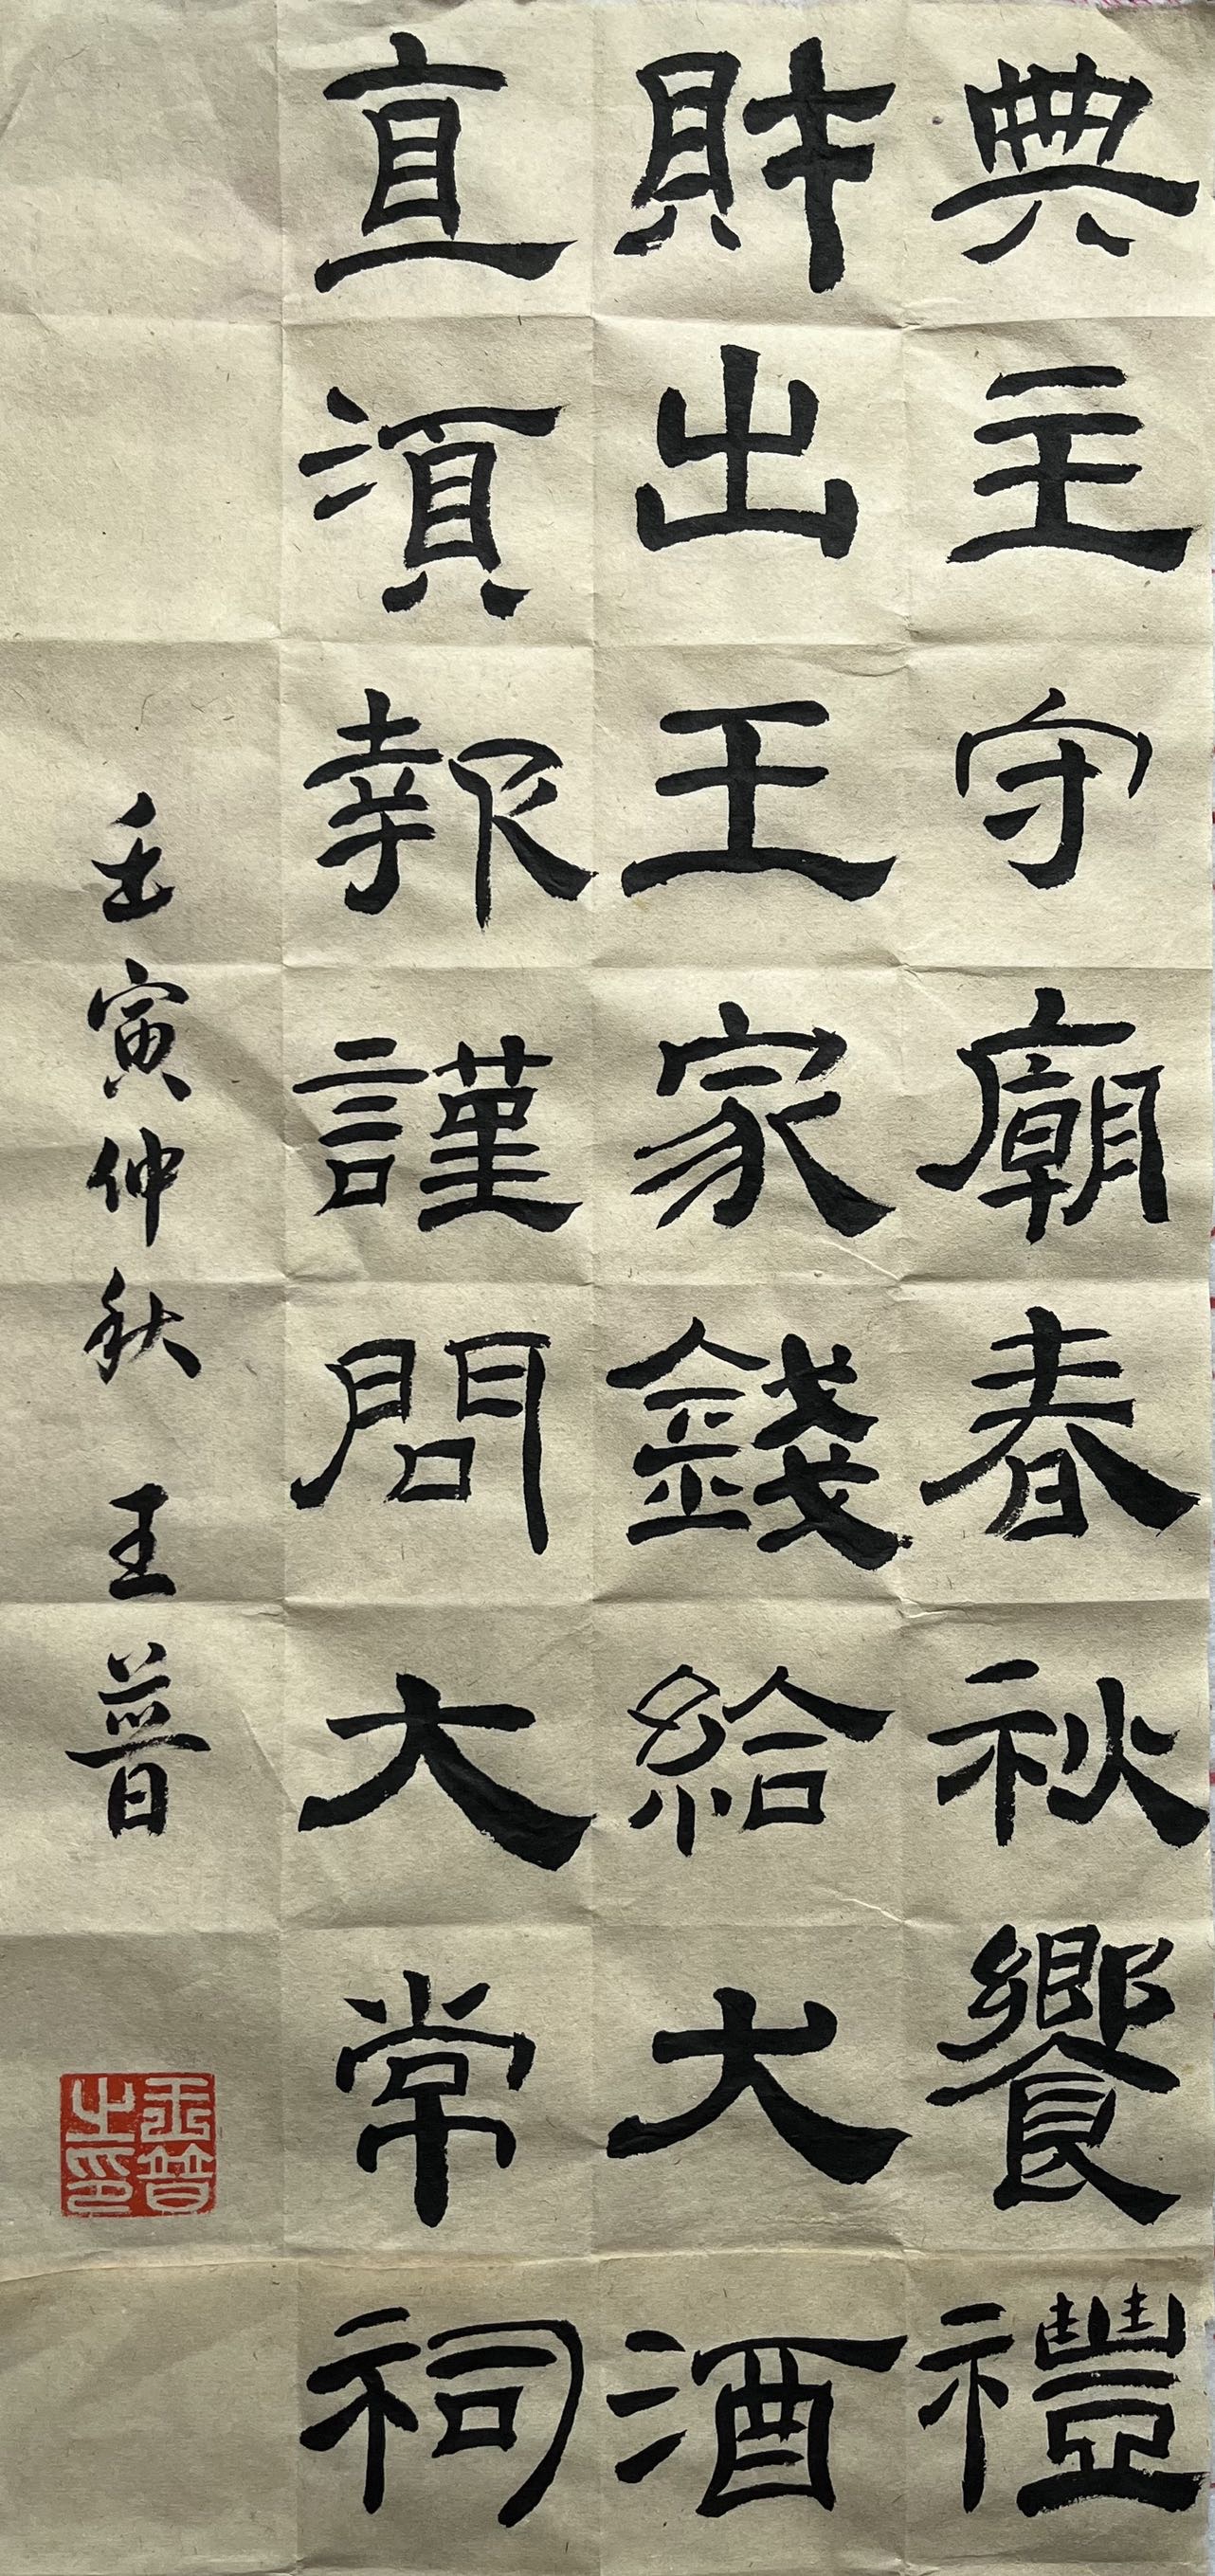 典主守廟春秋饗禮
財出王家錢給犬酒
直須報謹問大常祠
壬寅仲秋 王普
王普之印